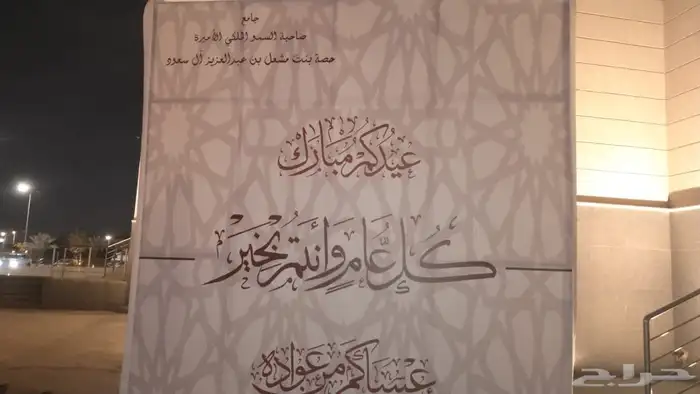 جامع
صاحبة السمو الملكي الأميرة
حصة بنت مشعل بن عبدالعزيز آل سعود
عيدكم مبارك
كل عام وأنتم بخير
عساكم من عواده
حراج